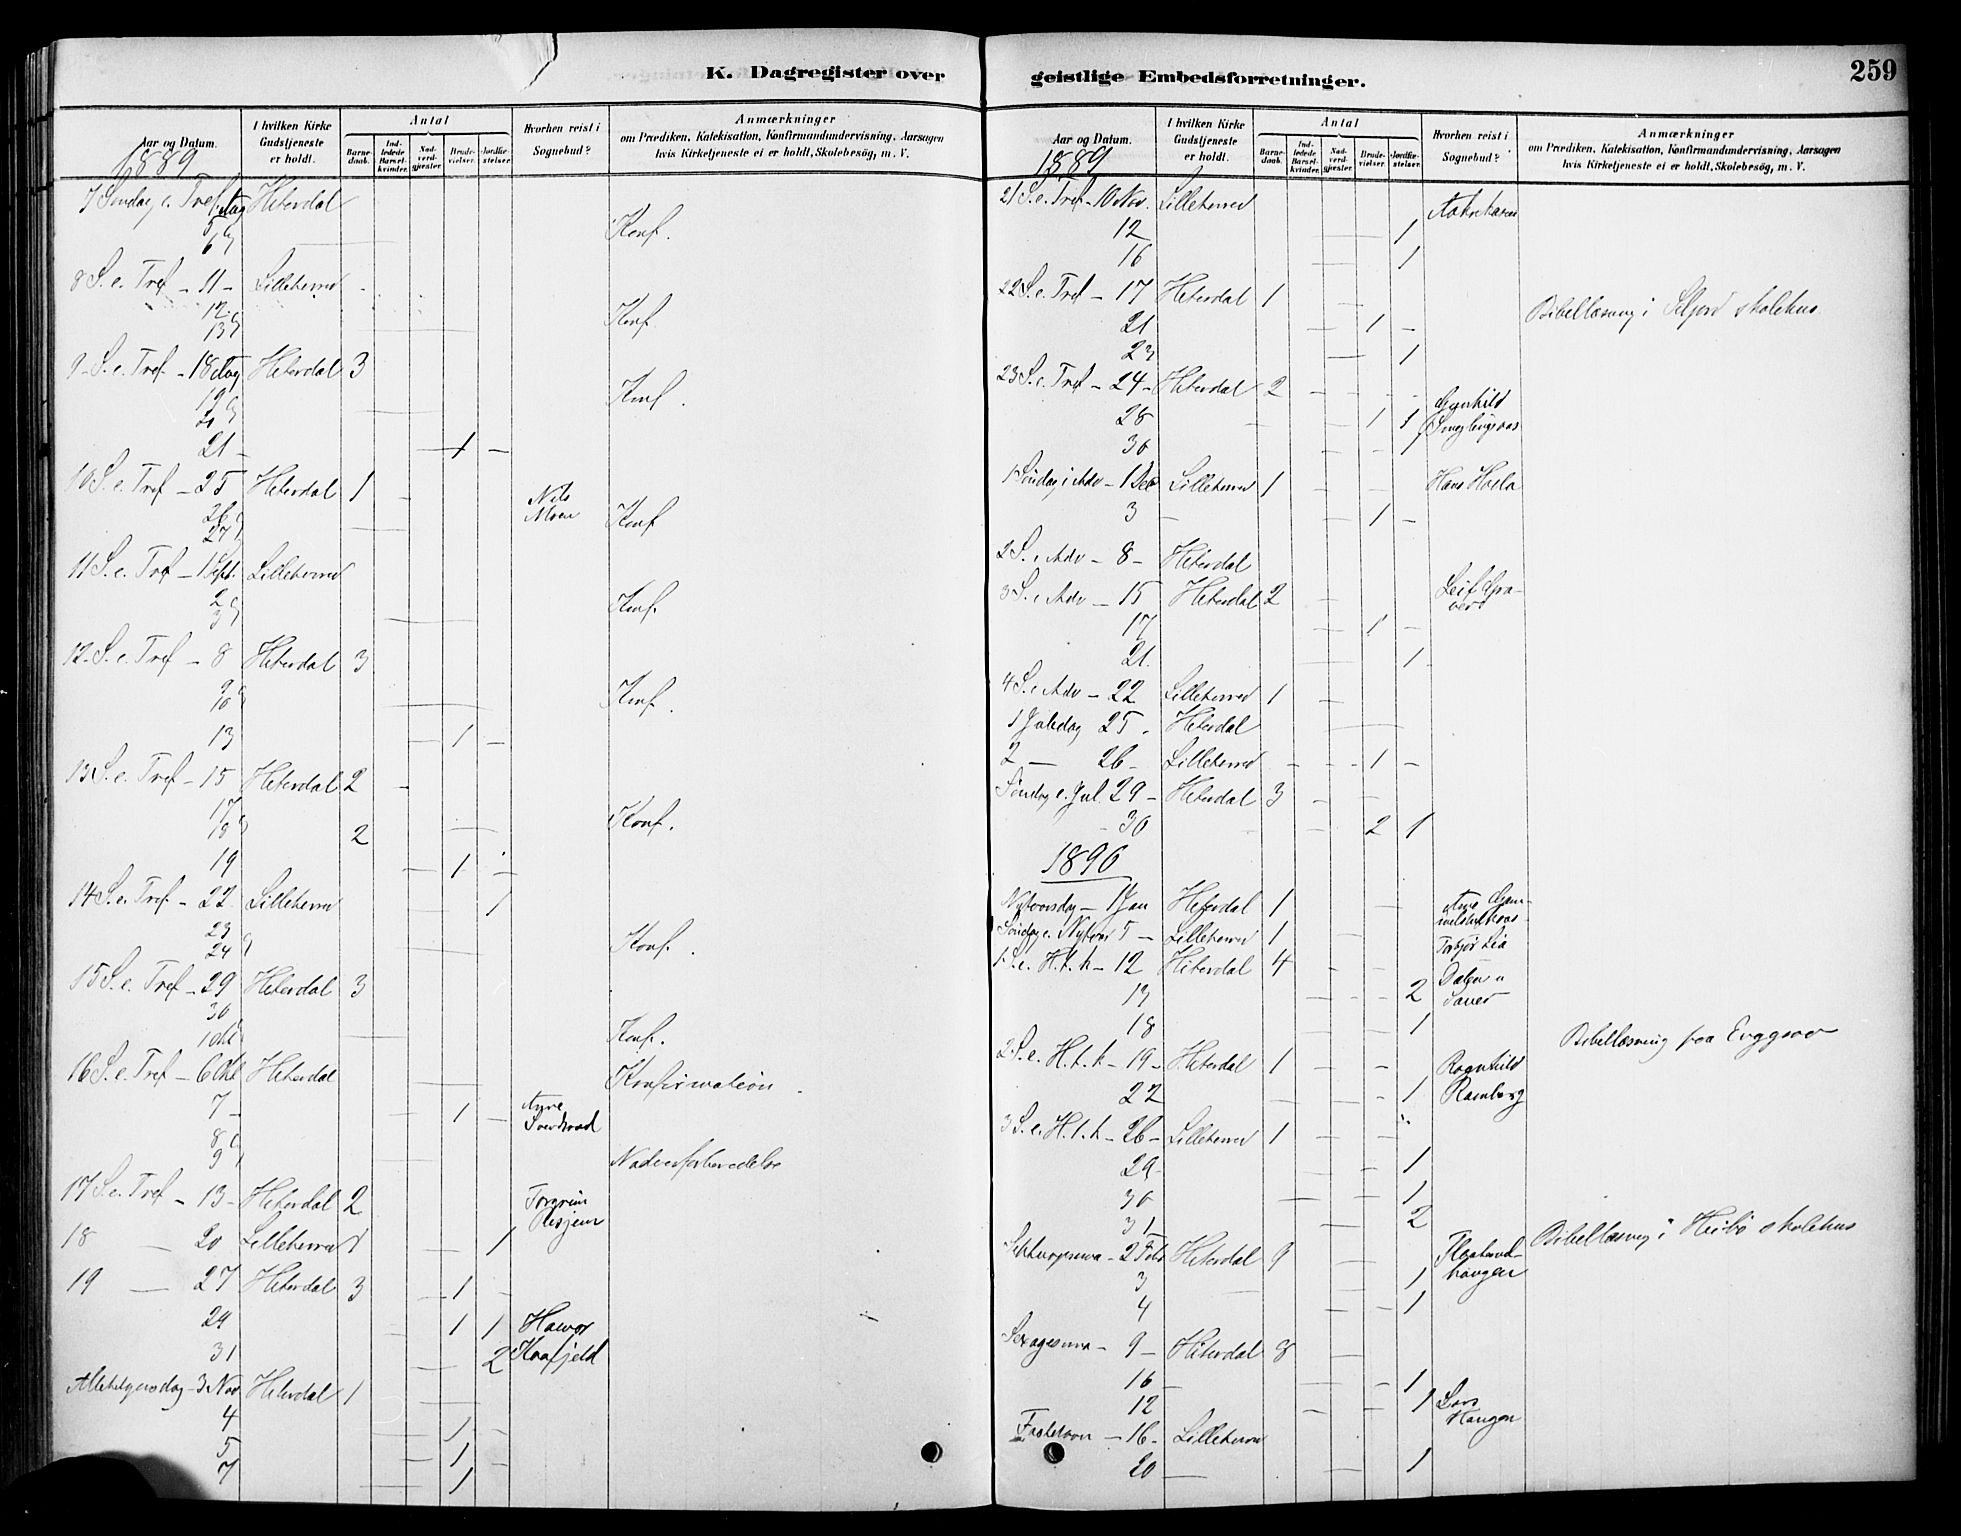 K. Dagregister over
geistlige Embedsforretninger.
259
Aar og Datum.
I hvilken Kirke Gudstjeneste er holdt.
Antal
Barne-daab.
Ind-ledede Barsel-kvinder.
Nad-verd-gjester.
Brude-vielser.
Jordfæ-stelser.
Hvorhen reist i Sognebud?
Anmærkninger
om Prædiken, Katekisation, Konfirmandundervisning, Aarsagen
hvis Kirketjeneste ei er holdt, Skolebesøg, m. V.
1889
7 Søndag e. Tref. Hiterdal
5 6 Konf.
8 S. e. Tref – 11 – Lilleherred
12 13 Konf
9 S. e. Tref – 18 Aug Hiterdal 3
19 20 Konf.
21 – 1 –
10 S. e. Tref – 25 Hiterdal 1 Nils Moen
26 27 Konf
11 S. e. Tref – 1 Sept. Lilleherred
2 3 Konf.
12 S. e. Tref – 8 Hiterdal 3
9 10 Konf.
13 – 1 –
13 S. e. Tref – 15 Hiterdal 2
17 18 2 Konf.
19 – 1 –
14 S. e. Tref. – 22 Lilleherred 1
23 24 Konf.
15 S. e. Tref – 29 Hiterdal 3
30 1 Okt Konf.
16 S. e. Tref – 6 Okt Hiterdal Konfirmation
7 – 1 –
8 9 Nadverforberedelse
17 S. e. Tref – 13 – Hiterdal 2 Torgrim
18 — 20 Lilleherred 1 1
19 — 27 Hiterdal 3 1
29 1 1
31 2 Kaafjeld
Allehelgensdag – 3 Nov Hiterdal 1
4 1
5 1
7 1
Aar og Datum.
I hvilken Kirke Gudstjeneste er holdt.
Antal
Barne-daab.
Ind-ledede Barsel-kvinder.
Nad-verd-gjester.
Brude-vielser.
Jordfæ-stelser.
Hvorhen reist i Sognebud?
Anmærkninger
om Prædiken, Katekisation, Konfirmandundervisning, Aarsagen
hvis Kirketjeneste ei er holdt, Skolebesøg, m. V.
1889
21 S. e. Tref – 10 Nov. Lilleherred
12 1
16 1
22 S. e. Tref – 17 Hiterdal 1 Bibellæsning i Seljord skolehus
21 1 –
23 1
23 S. e. Tref – 24 – Hiterdal 2 Gunhild
28 1 1
30 1
1 Søndag i Adv – 1 Dec Lilleherred 1 Hans Hosla
3 – 1 –
2 S. i Adv – 8 – Hiterdal
3 S. i Adv – 15 Hiterdal 2 Leif Gra-
ver
17 1 –
21 1
4 S. i Adv – 22 Lilleherred 1
1 Juledag 25 Hiterdal
2 — 26 – Lilleherred 1 –
Søndag e. Jul. 29 – Hiterdal 3
30 2 1
1890
Nytaarsdag – 1 Jan Hiterdal 1
Søndag e. Nytaar 5 – Lilleherred 1
1 S. e. H. t. k – 12 Hiterdal 4
13 2
18 1
2 S. e. H. t. k – 19 – Hiterdal 1 Ragnhild Bibellæsning paa
22 1 Ramberg
3 S. e. H. t. k – 26 – Lilleherred 1
29 1
30 1
31 2
2 Feb Hiterdal 9 Bibellæsning i Heibø skolehus
3 1 haugen
4 1
Sexagesima – 9 – Hiterdal 8
1
12 1 Lars Haugen
Fastelavn – 16 – Lilleherred
20 — 1